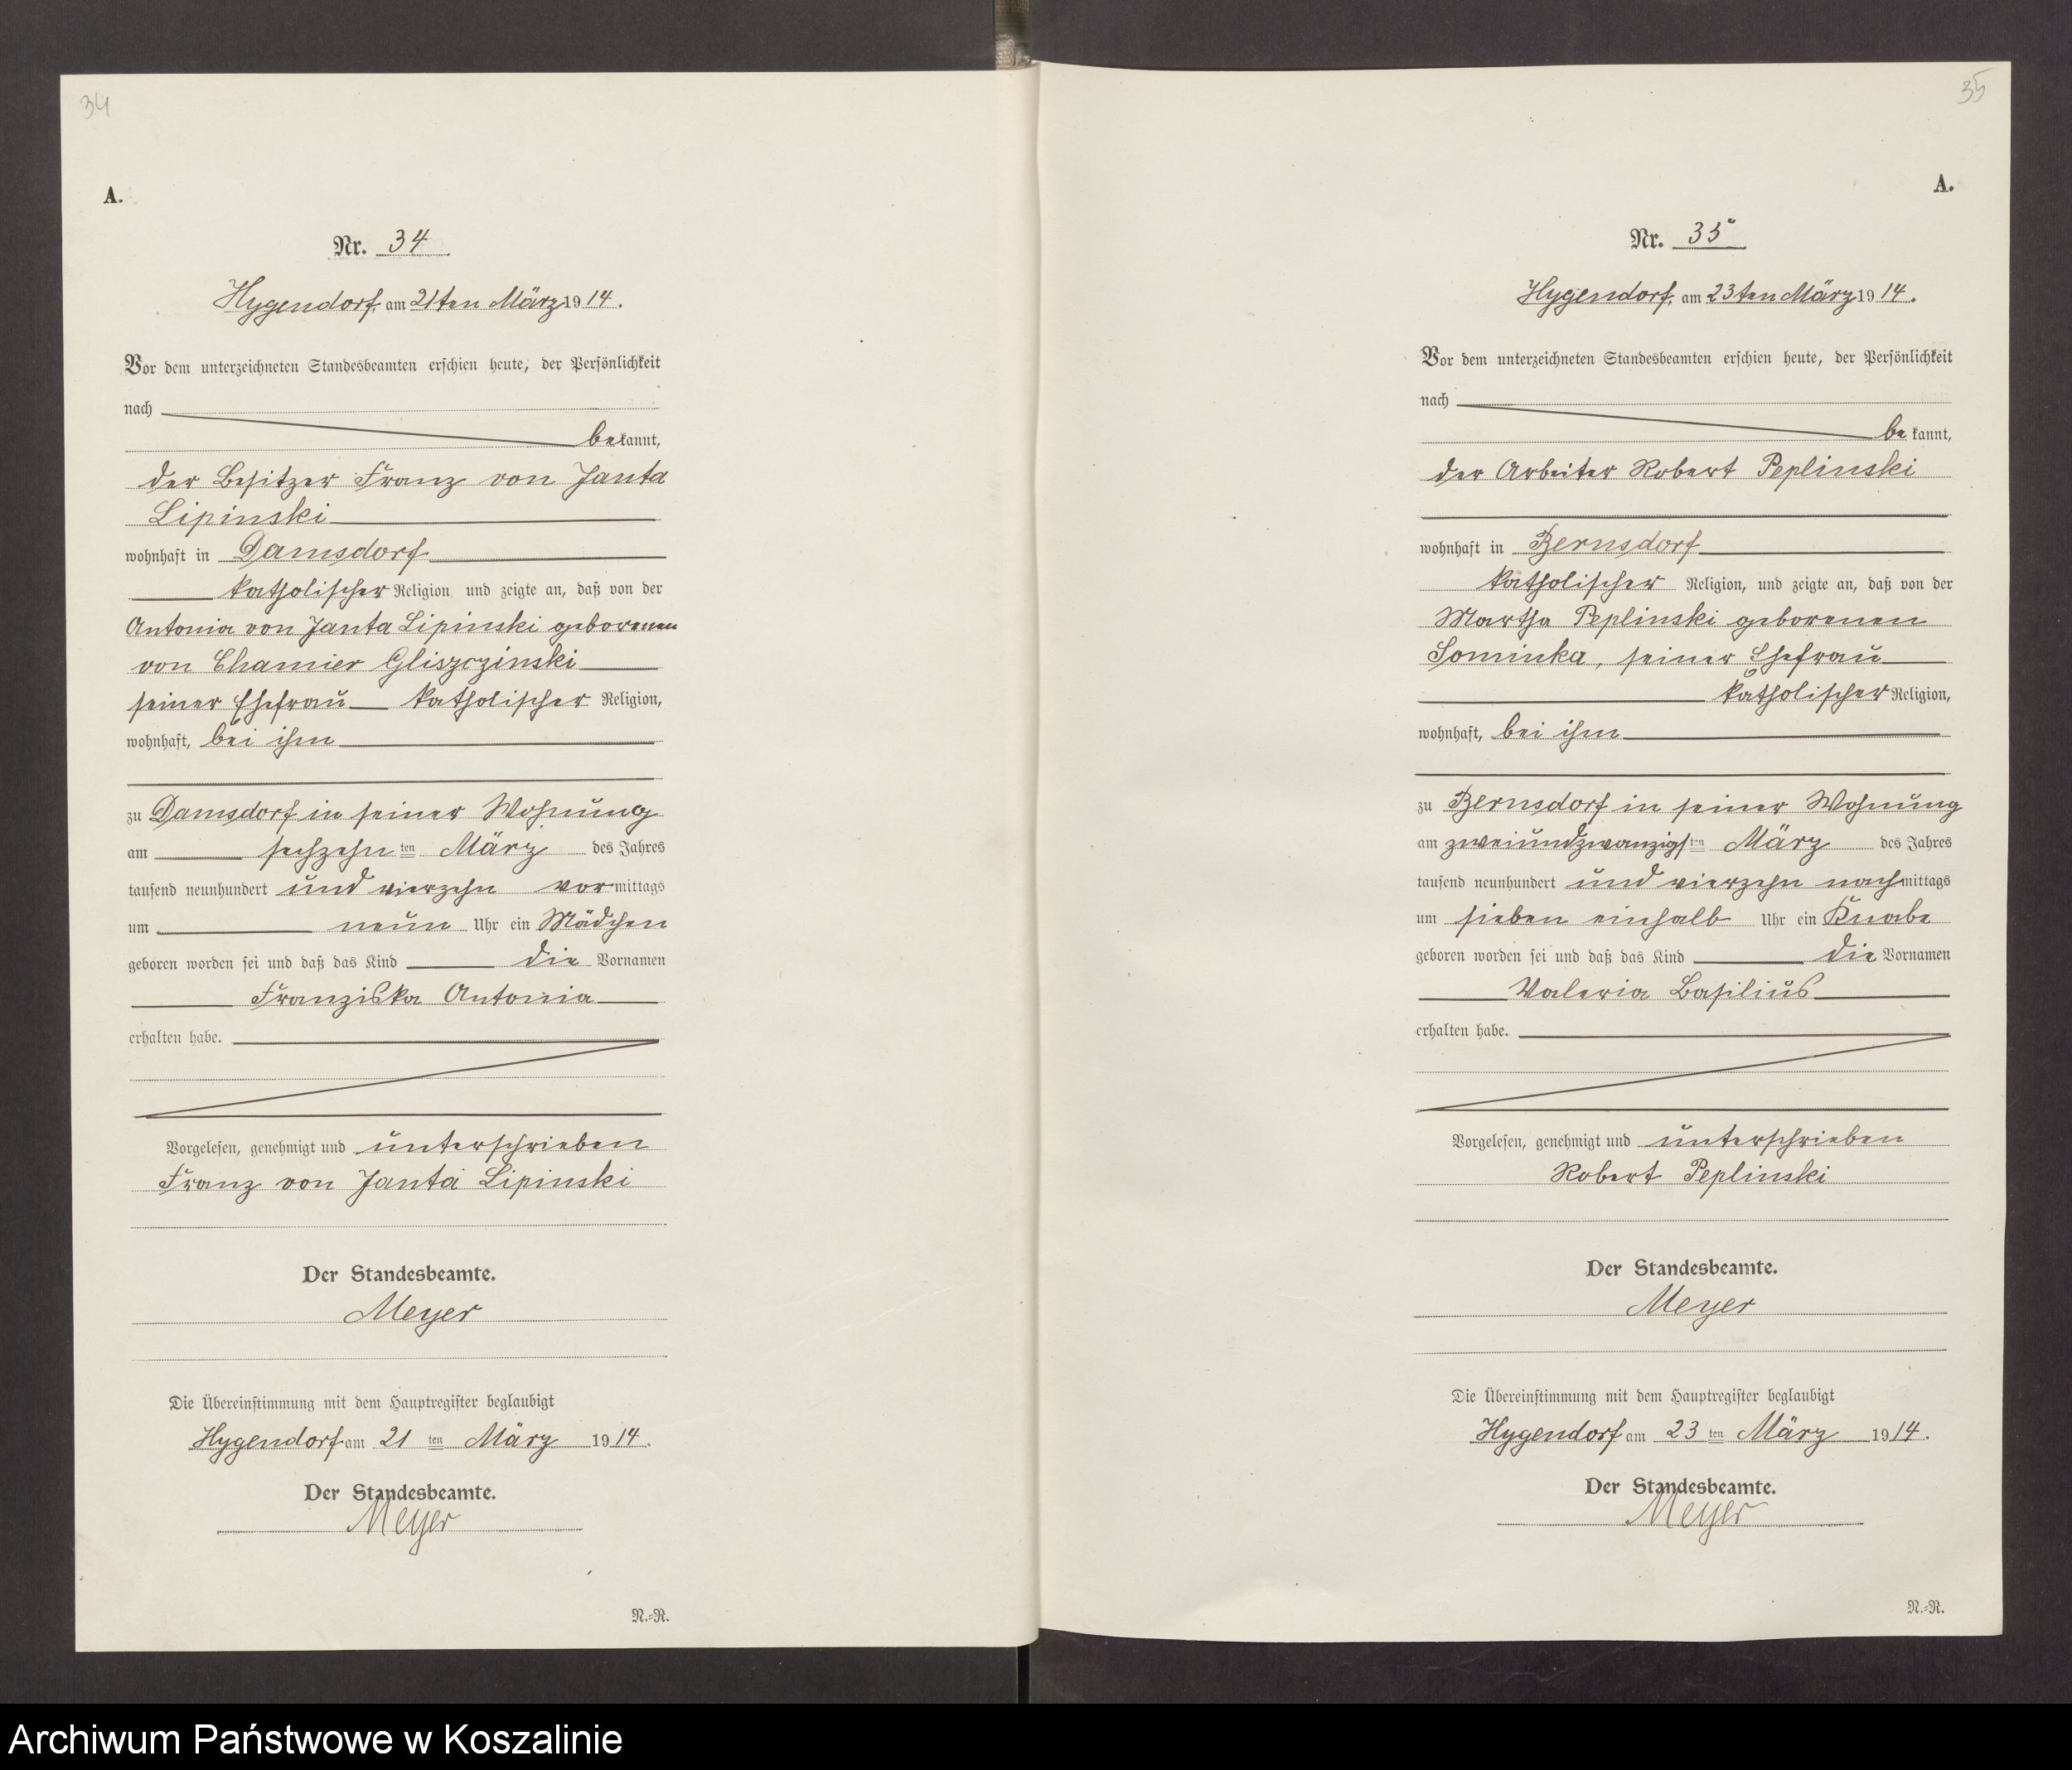 34
A.
Nr. 34
Hygendorf, am 21ten März 1914.
Vor dem unterzeichneten Standesbeamten erschien heute, der Persönlichkeit
nach
bekannt,
der Besitzer Franz von Janta
Lipinski
wohnhaft in Damsdorf
katholischer Religion, und zeigte an, daß von der
Antonia von Janta Lipinski geborenen
von Chamier Gliszczinski
seiner Ehefrau katholischer Religion,
wohnhaft, bei ihm
zu Damsdorf in seiner Wohnung
am sechzehnten März des Jahres
tausend neunhundert und vierzehn vormittags
um neun Uhr ein Mädchen
geboren worden sei und daß das Kind die Vornamen
Franziska Antonia
erhalten habe.
Vorgelesen, genehmigt und unterschrieben
Franz von Janta Lipinski
Der Standesbeamte.
Meyer
Die Übereinstimmung mit dem Hauptregister beglaubigt
Hygendorf am 21ten März 1914.
Der Standesbeamte.
Meyer
N.=R.
35
A.
Nr. 35
Hygendorf, am 23ten März 1914.
Vor dem unterzeichneten Standesbeamten erschien heute, der Persönlichkeit
nach
bekannt,
der Arbeiter Robert Peplinski
wohnhaft in Bernsdorf
katholischer Religion, und zeigte an, daß von der
Martha Peplinski geborenen
Sominka, seiner Ehefrau
katholischer Religion,
wohnhaft, bei ihm
zu Bernsdorf in seiner Wohnung
am zweiundzwanzigsten März des Jahres
tausend neunhundert und vierzehn nachmittags
um sieben einhalb Uhr ein Knabe
geboren worden sei und daß das Kind die Vornamen
Valeria Basilius
erhalten habe.
Vorgelesen, genehmigt und unterschrieben
Robert Peplinski
Der Standesbeamte.
Meyer
Die Übereinstimmung mit dem Hauptregister beglaubigt
Hygendorf am 23ten März 1914.
Der Standesbeamte.
Meyer
N.=R.
Archiwum Państwowe w Koszalinie